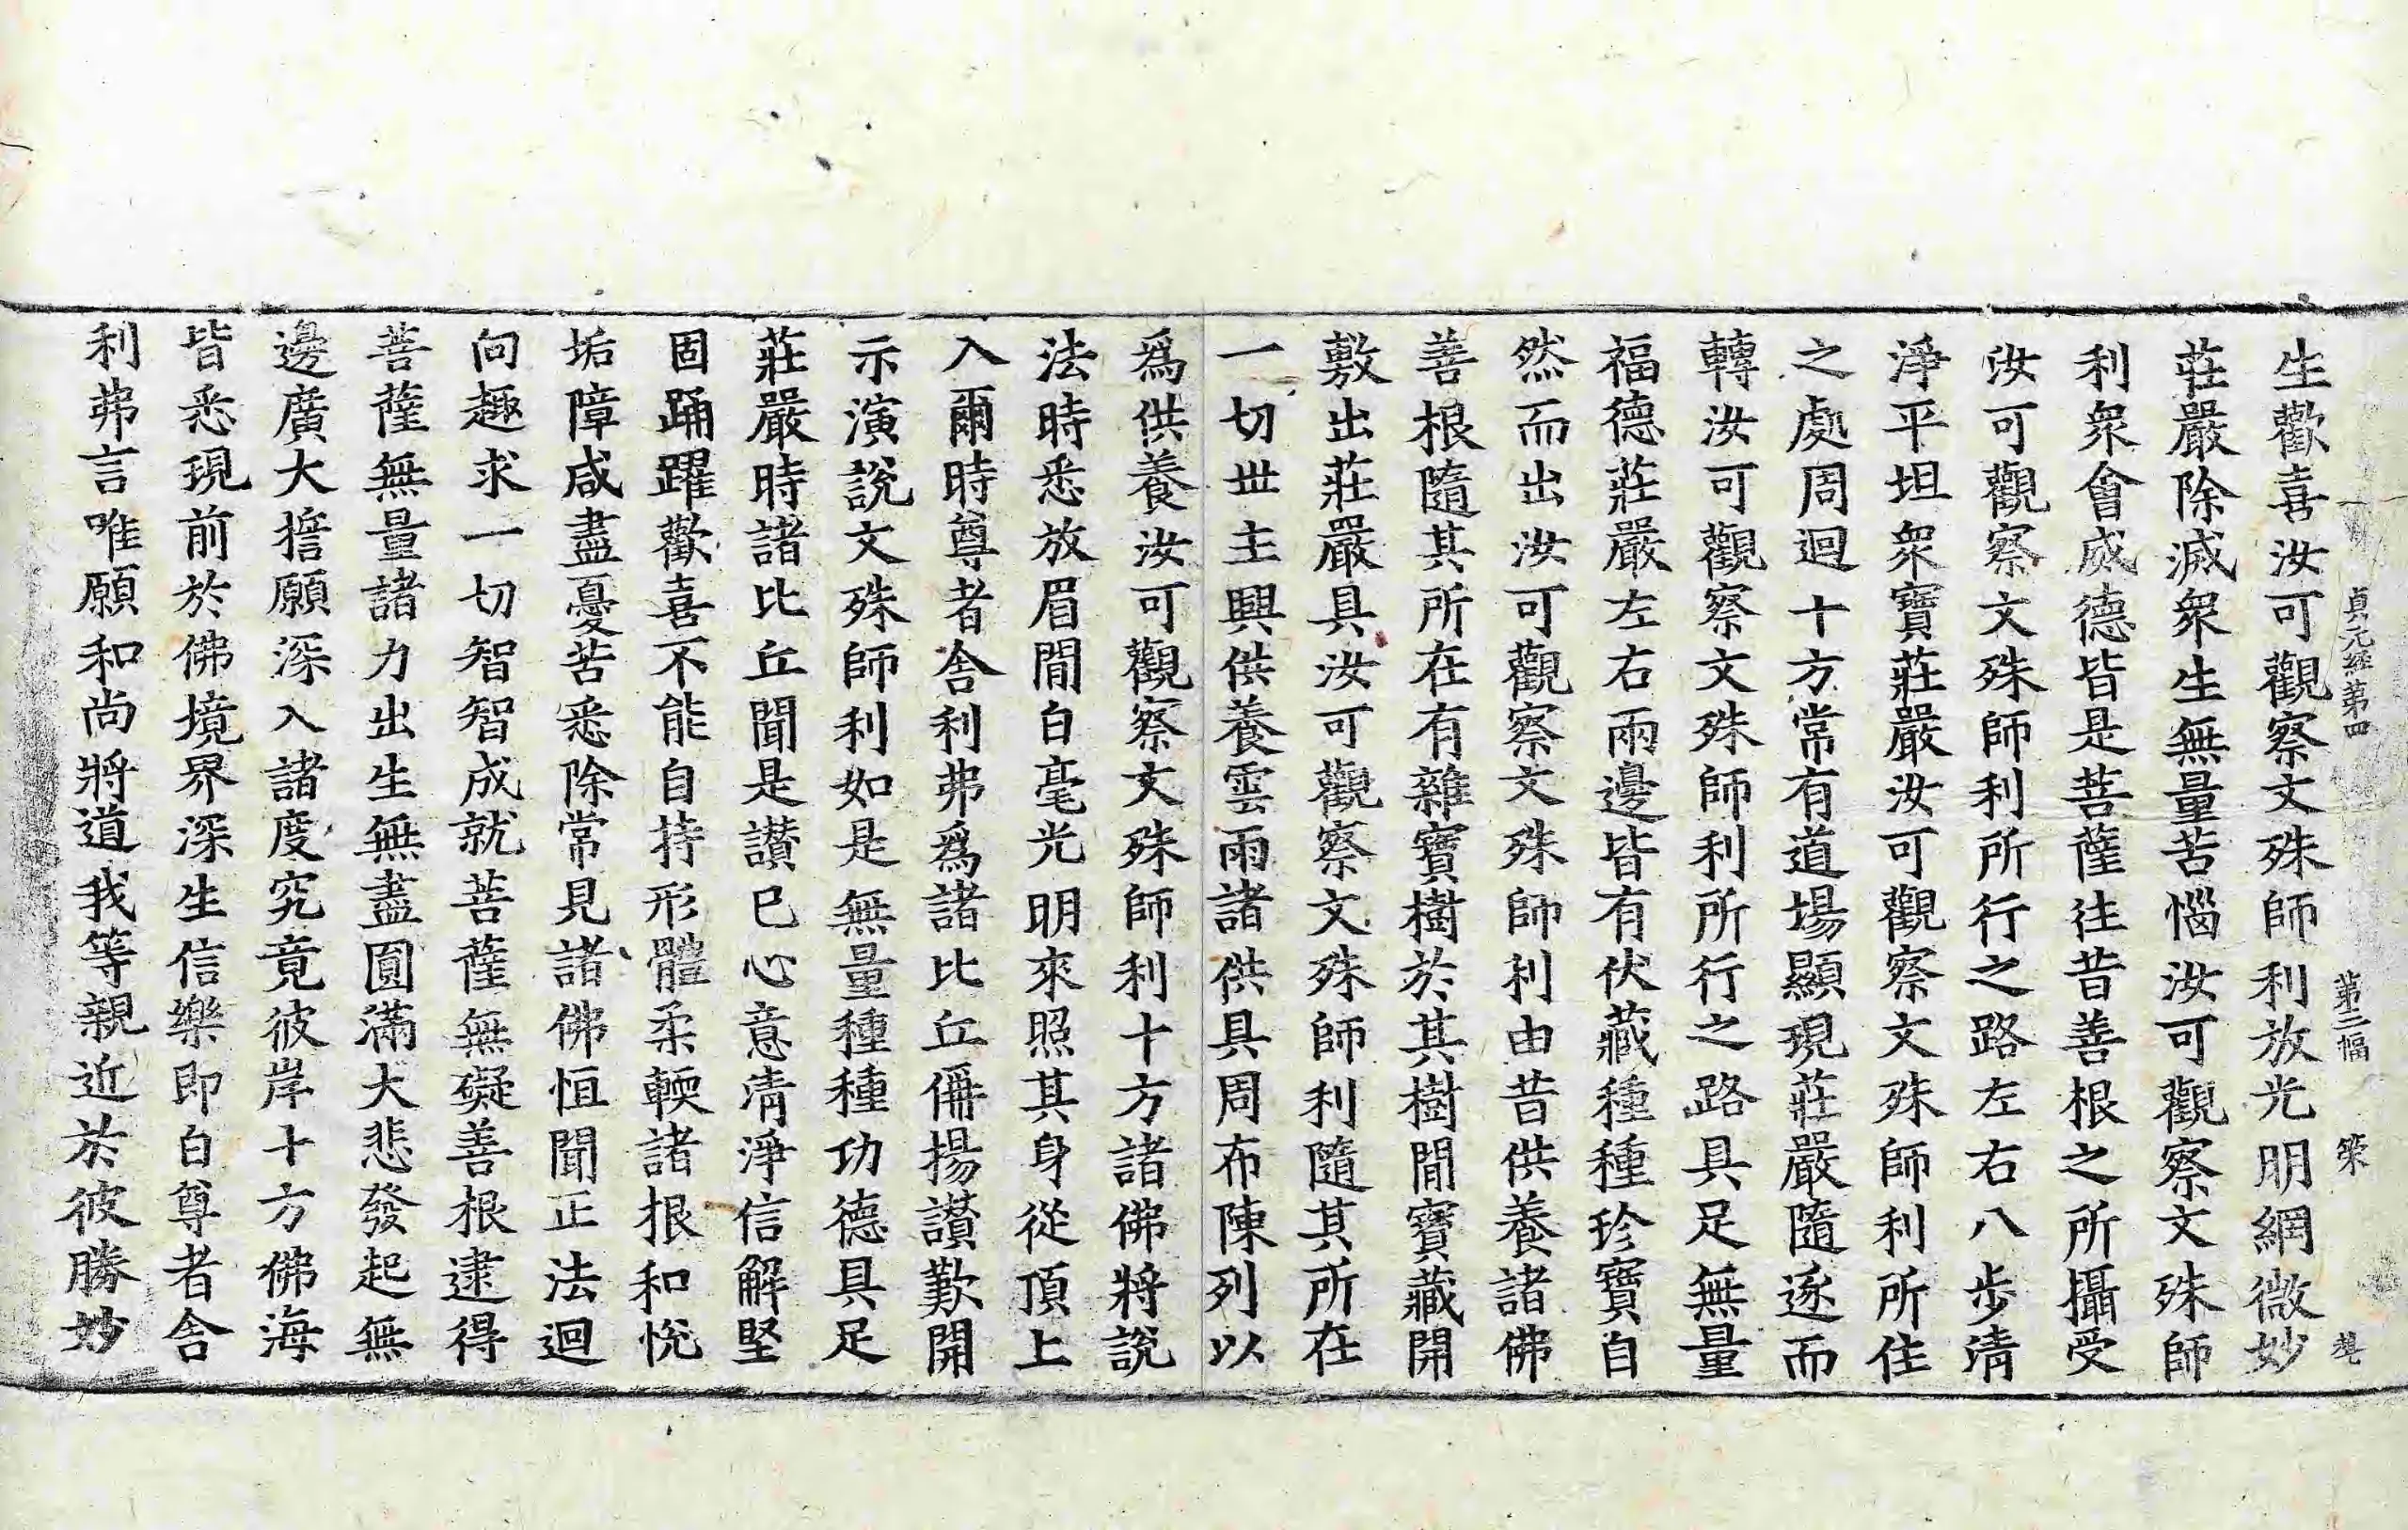 貞元經第四 第二幅 榮
生歡喜汝可觀察文殊師利放光明網微妙
莊嚴除滅衆生無量苦惱汝可觀察文殊師
利衆會威德皆是菩薩往昔善根之所攝受
汝可觀察文殊師利所行之路左右八步清
淨平坦衆寶莊嚴汝可觀察文殊師利所住
之處周迴十方常有道場顯現莊嚴隨逐而
轉汝可觀察文殊師利所行之路具足無量
福德莊嚴左右兩邊皆有伏藏種種珍寶自
然而出汝可觀察文殊師利由昔供養諸佛
善根隨其所在有雜寶樹於其樹間寶藏開
敷出莊嚴具汝可觀察文殊師利隨其所在
一切世主興供養雲雨諸供具周布陳列以
爲供養汝可觀察文殊師利十方諸佛將說
法時悉放眉間白毫光明來照其身從頂上
入爾時尊者舍利弗爲諸比丘偁揚讃歎開
示演說文殊師利如是無量種種功德具足
莊嚴時諸比丘聞是讃已心意清淨信解堅
固踊躍歡喜不能自持形體柔輭諸根和悅
垢障咸盡憂苦悉除常見諸佛恒聞正法迴
向趣求一切智智成就菩薩無礙善根逮得
菩薩無量諸力出生無盡圓滿大悲發起無
邊廣大誓願深入諸度究竟彼岸十方佛海
皆悉現前於佛境界深生信樂即白尊者舍
利弗言唯願和尚將道我等親近於彼勝妙